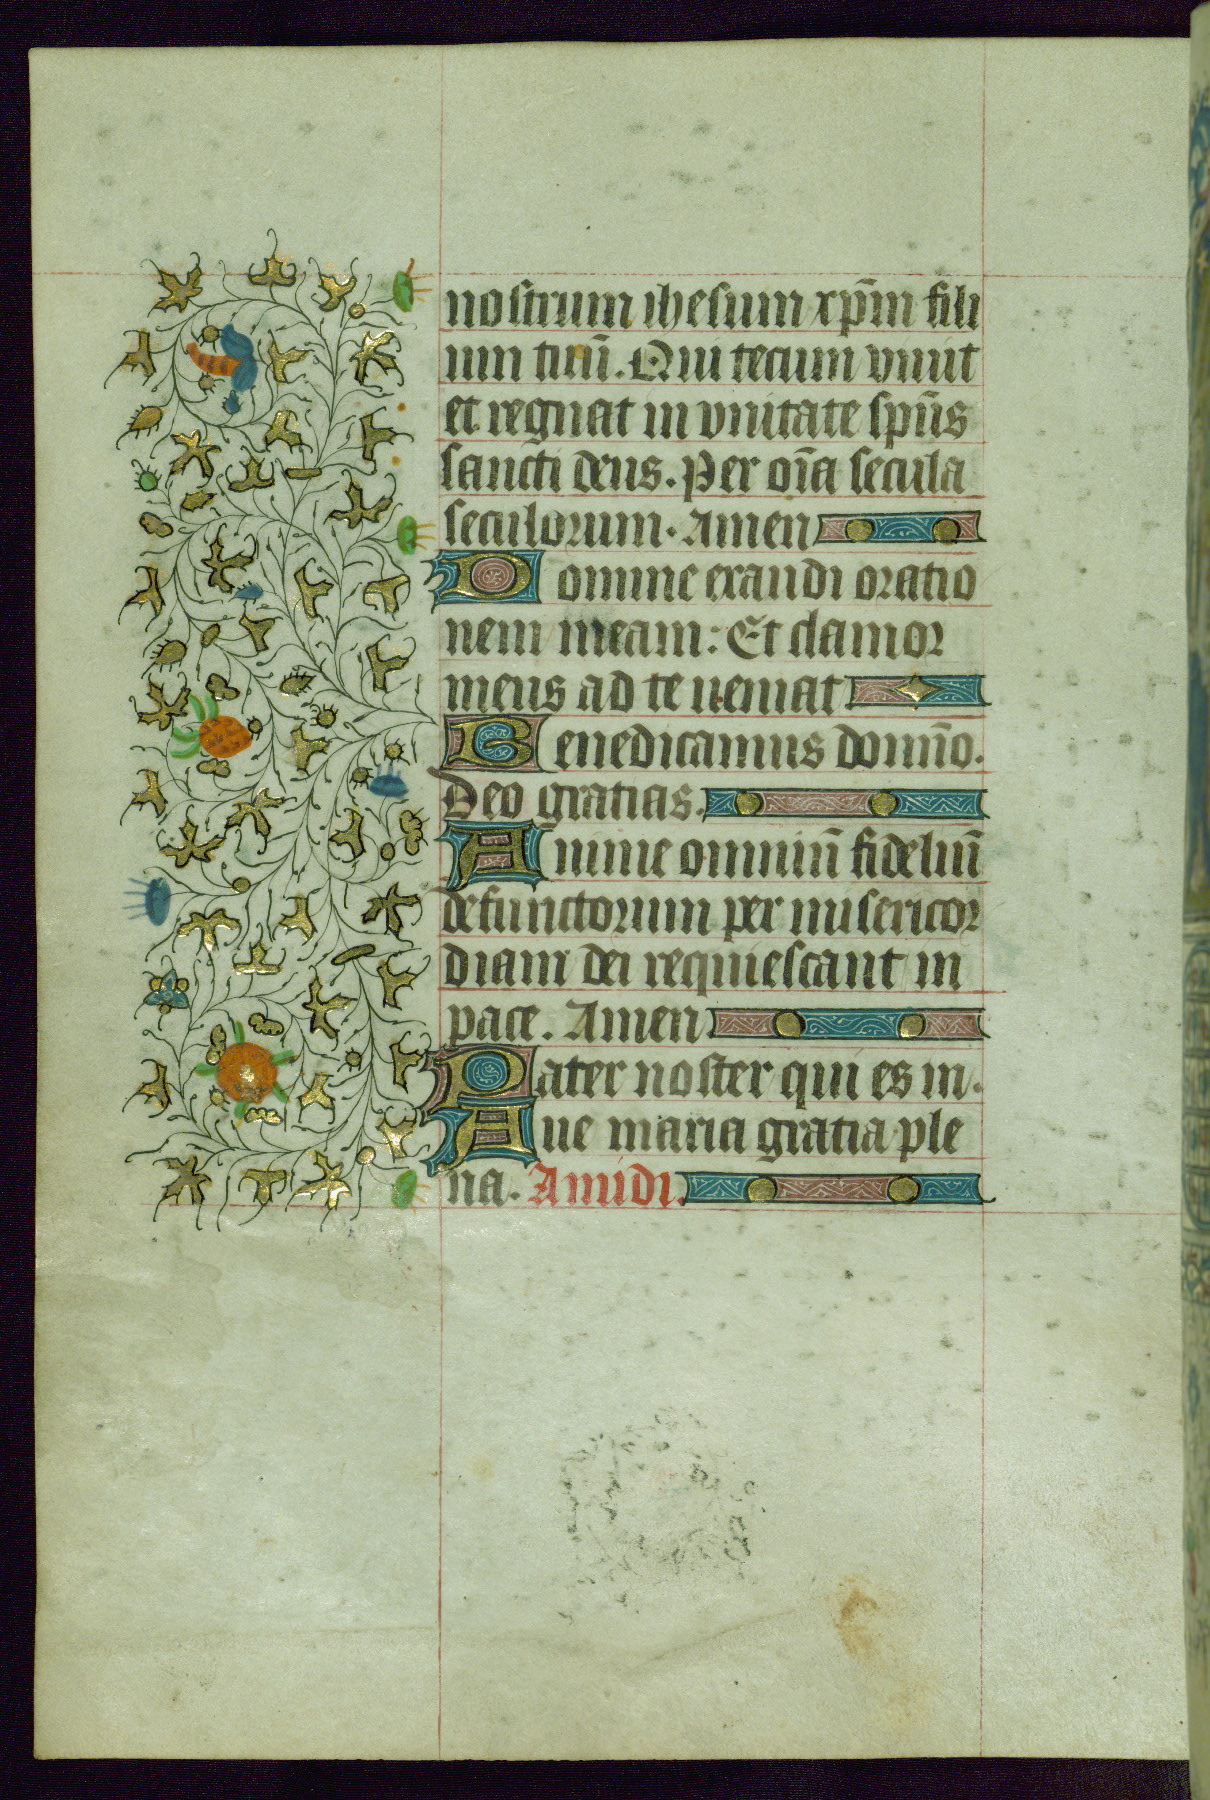 nostrum ihesum xp̄m fili
um tuū. Qui tecum viuit
et regnat in vnitate sp̄us
sancti deus. Per oīa secula
seculorum. Amen
Domine exaudi oratio
nem meam: Et clamor
meus ad te ueniat
Benedicamus domīno.
Deo gratias.
Anime omniuū fideliū
defunctorum per misericor
diam dei requiescant in
pace. Amen
Pater noster qui es in.
Aue maria gratia ple
na. Amidi.